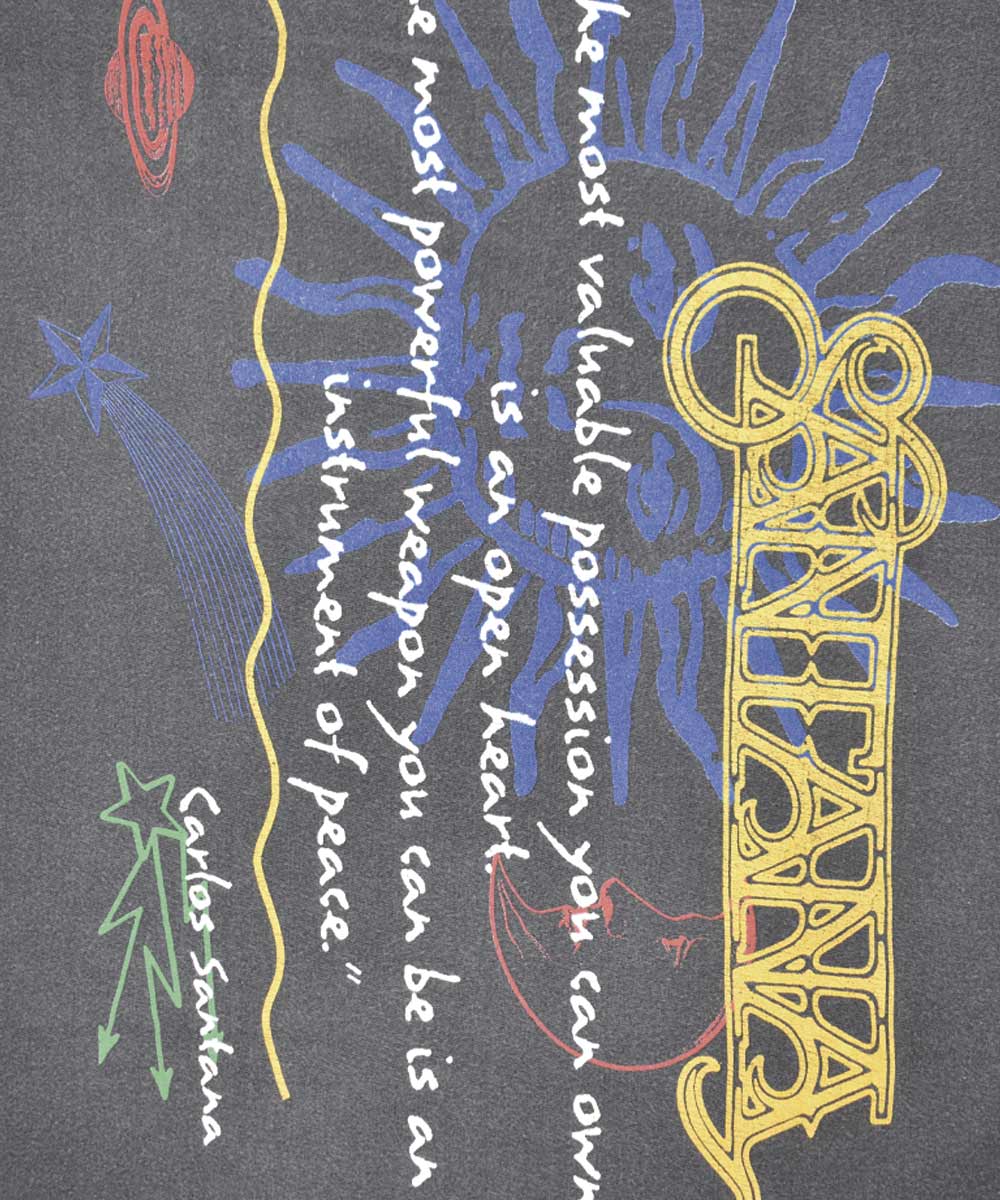 SANTANA
he most valuable possession you can own
is an open heart.
e most powerful weapon you can be is an
instrument of peace."
Carlos Santana